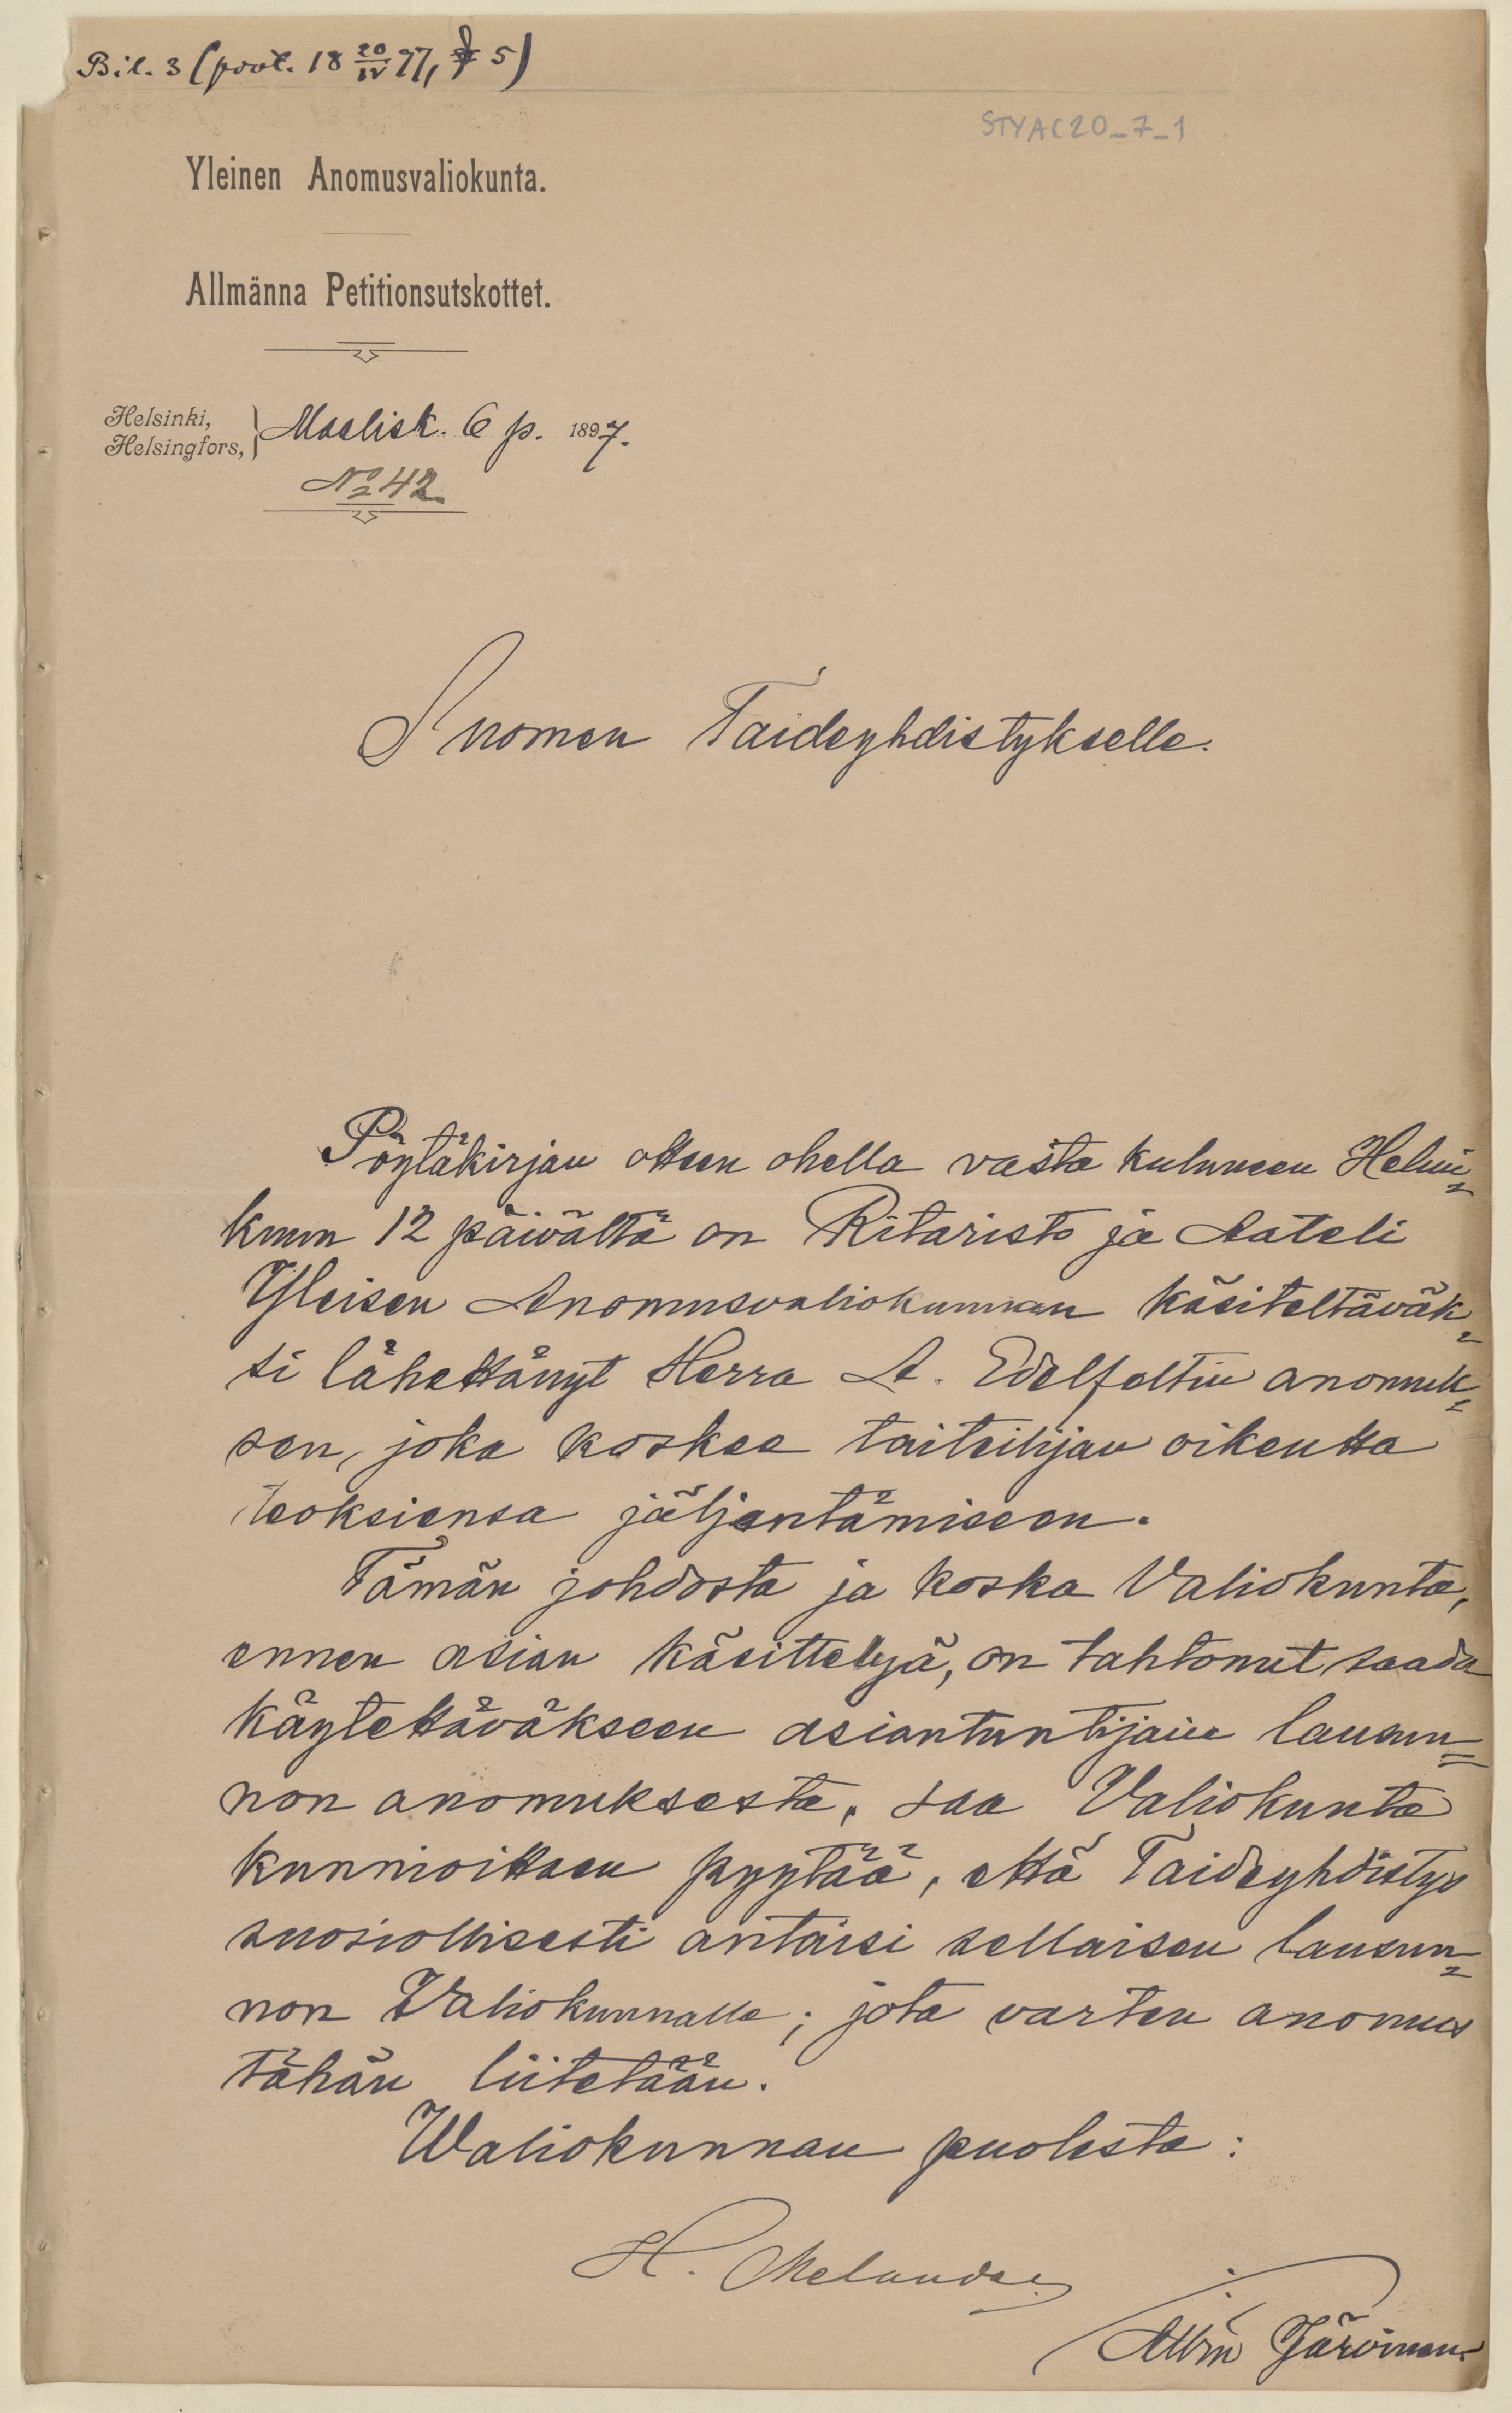 Bil. 3 (prot. 18 20/IV 97, § 5)
STYAC20_7_1
Yleinen Anomusvaliokunta.
Allmänna Petitionsutskottet.
Helsinki,
Helsingfors, } Maalisk. 6 p. 1897.
No 42.
Suomen Taideyhdistykselle.
Pöytäkirjan otteen ohella vasta kuluneen Helmi-
kuun 12 päivältä on Ritaristo ja Aateli
Yleisen Anomusvaliokunnan käsiteltäväk-
si lähettänyt Herra A. Edelfeltin anomuk-
sen, joka koskee taiteilijan oikeutta
teoksiensa jäljentämiseen.
Tämän johdosta ja koska Valiokunta,
ennen asian käsittelyä, on tahtonut saada
käytettäväkseen asiantuntijain lausun-
non anomuksesta, saa Valiokunta
kunnioittaen pyytää, että Taideyhdistys
suosiollisesti antaisi sellaisen lausun-
non Valiokunnalle; jota varten anomus
tähän liitetään.
Waliokunnan puolesta:
H. Melander
Albin Järvinen.